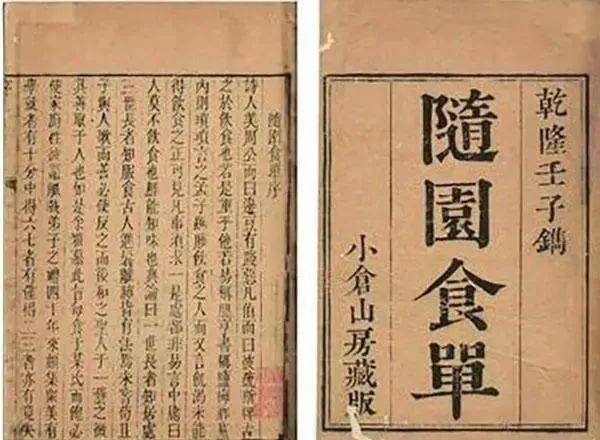 乾隆壬子鐫
隨園食單
小倉山房藏版
隨園食單序
詩人美周公而曰籩豆有踐惡凡伯而曰彼疏斯稗古
之於飲食也若是重乎他若易稱鼎亨書稱鹽梅鄉黨
內則瑣瑣言之孟子雖賤飲食之人而又言飢渴未能
得飲食之正可見凡事須求一是處都非易言中庸曰
人莫不飲食也鮮能知味也典論曰一世長者知居處
三世長者知服食古人進鬐離肺皆有法焉未嘗苟且
子與人歌而善必使反之而後和之聖人于一藝之微
其善取于人也如是余雅慕此旨每食于某氏而飽必
使家廚往彼灶觚執弟子之禮四十年來頗集眾美有
學就者有十分中得六七者有僅得二三者亦有竟失